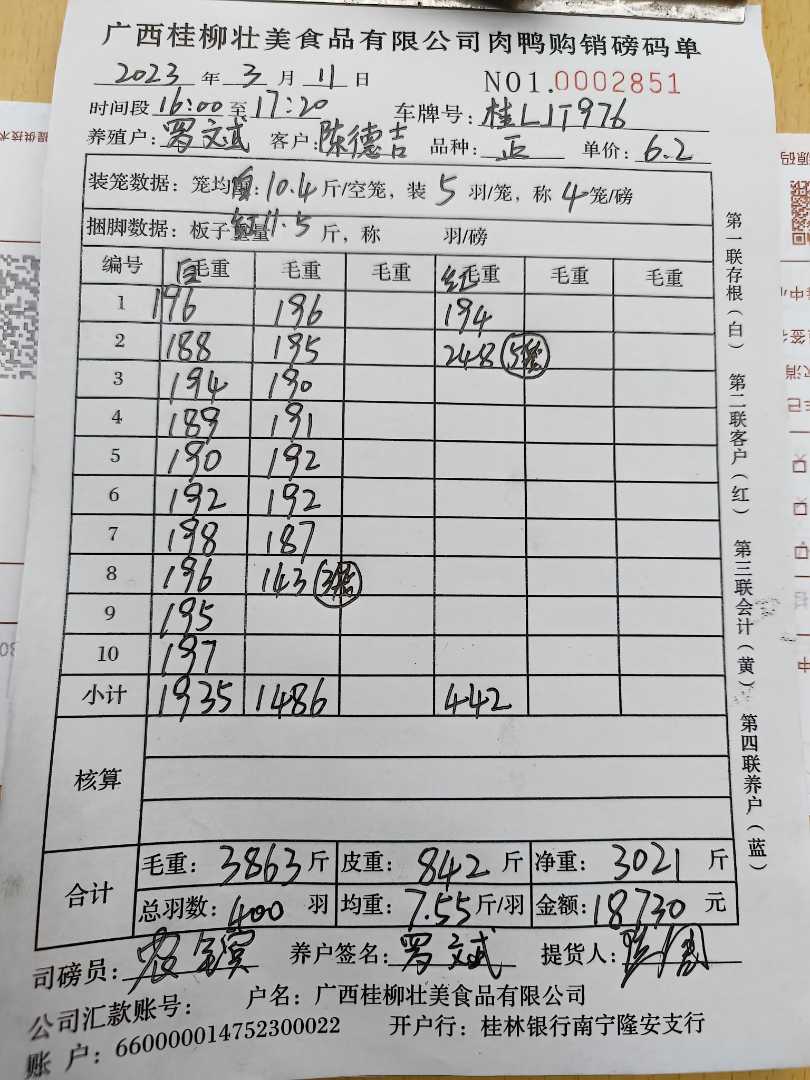 广西桂柳壮美食品有限公司肉鸭购销磅码单
2023 年 3 月 11 日 NO1.0002851
时间段 16:00 至 17:20 车牌号: 桂LJT976
养殖户: 罗文斌 客户: 陈德吉 品种: 正 单价: 6.2
装笼数据: 笼均重: 白 10.4 斤/空笼, 装 5 羽/笼, 称 4 笼/磅
捆脚数据: 板子重量 红 11.5 斤, 称 羽/磅
编号 白毛重 毛重 毛重 红毛重 毛重 毛重
1 196 196 194
2 188 195 248 5笼
3 194 190
4 189 191
5 190 192
6 192 192
7 198 187
8 196 143 3笼
9 195
10 197
小计 1935 1486 442
核算
合计 毛重: 3863 斤 皮重: 842 斤 净重: 3021 斤
总羽数: 400 羽 均重: 7.55 斤/羽 金额: 18730 元
司磅员: 养户签名: 罗文斌 提货人:
公司汇款账号: 户名: 广西桂柳壮美食品有限公司
账 户: 660000014752300022 开户行: 桂林银行南宁隆安支行
第一联存根(白) 第二联客户(红) 第三联会计(黄) 第四联养户(蓝)
提供技术
源码